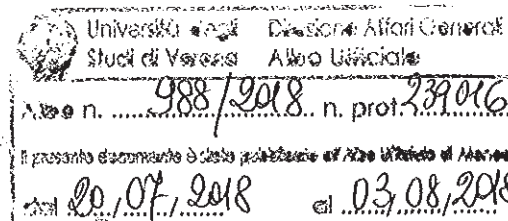 Università degli Direzione Affari Generali
Studi di Verona Albo Ufficiale
Albo n. 988/2018 n. prot. 239016
Il presente documento è stato pubblicato all'Albo Ufficiale di
dal 20/07/2018 al 03/08/2018